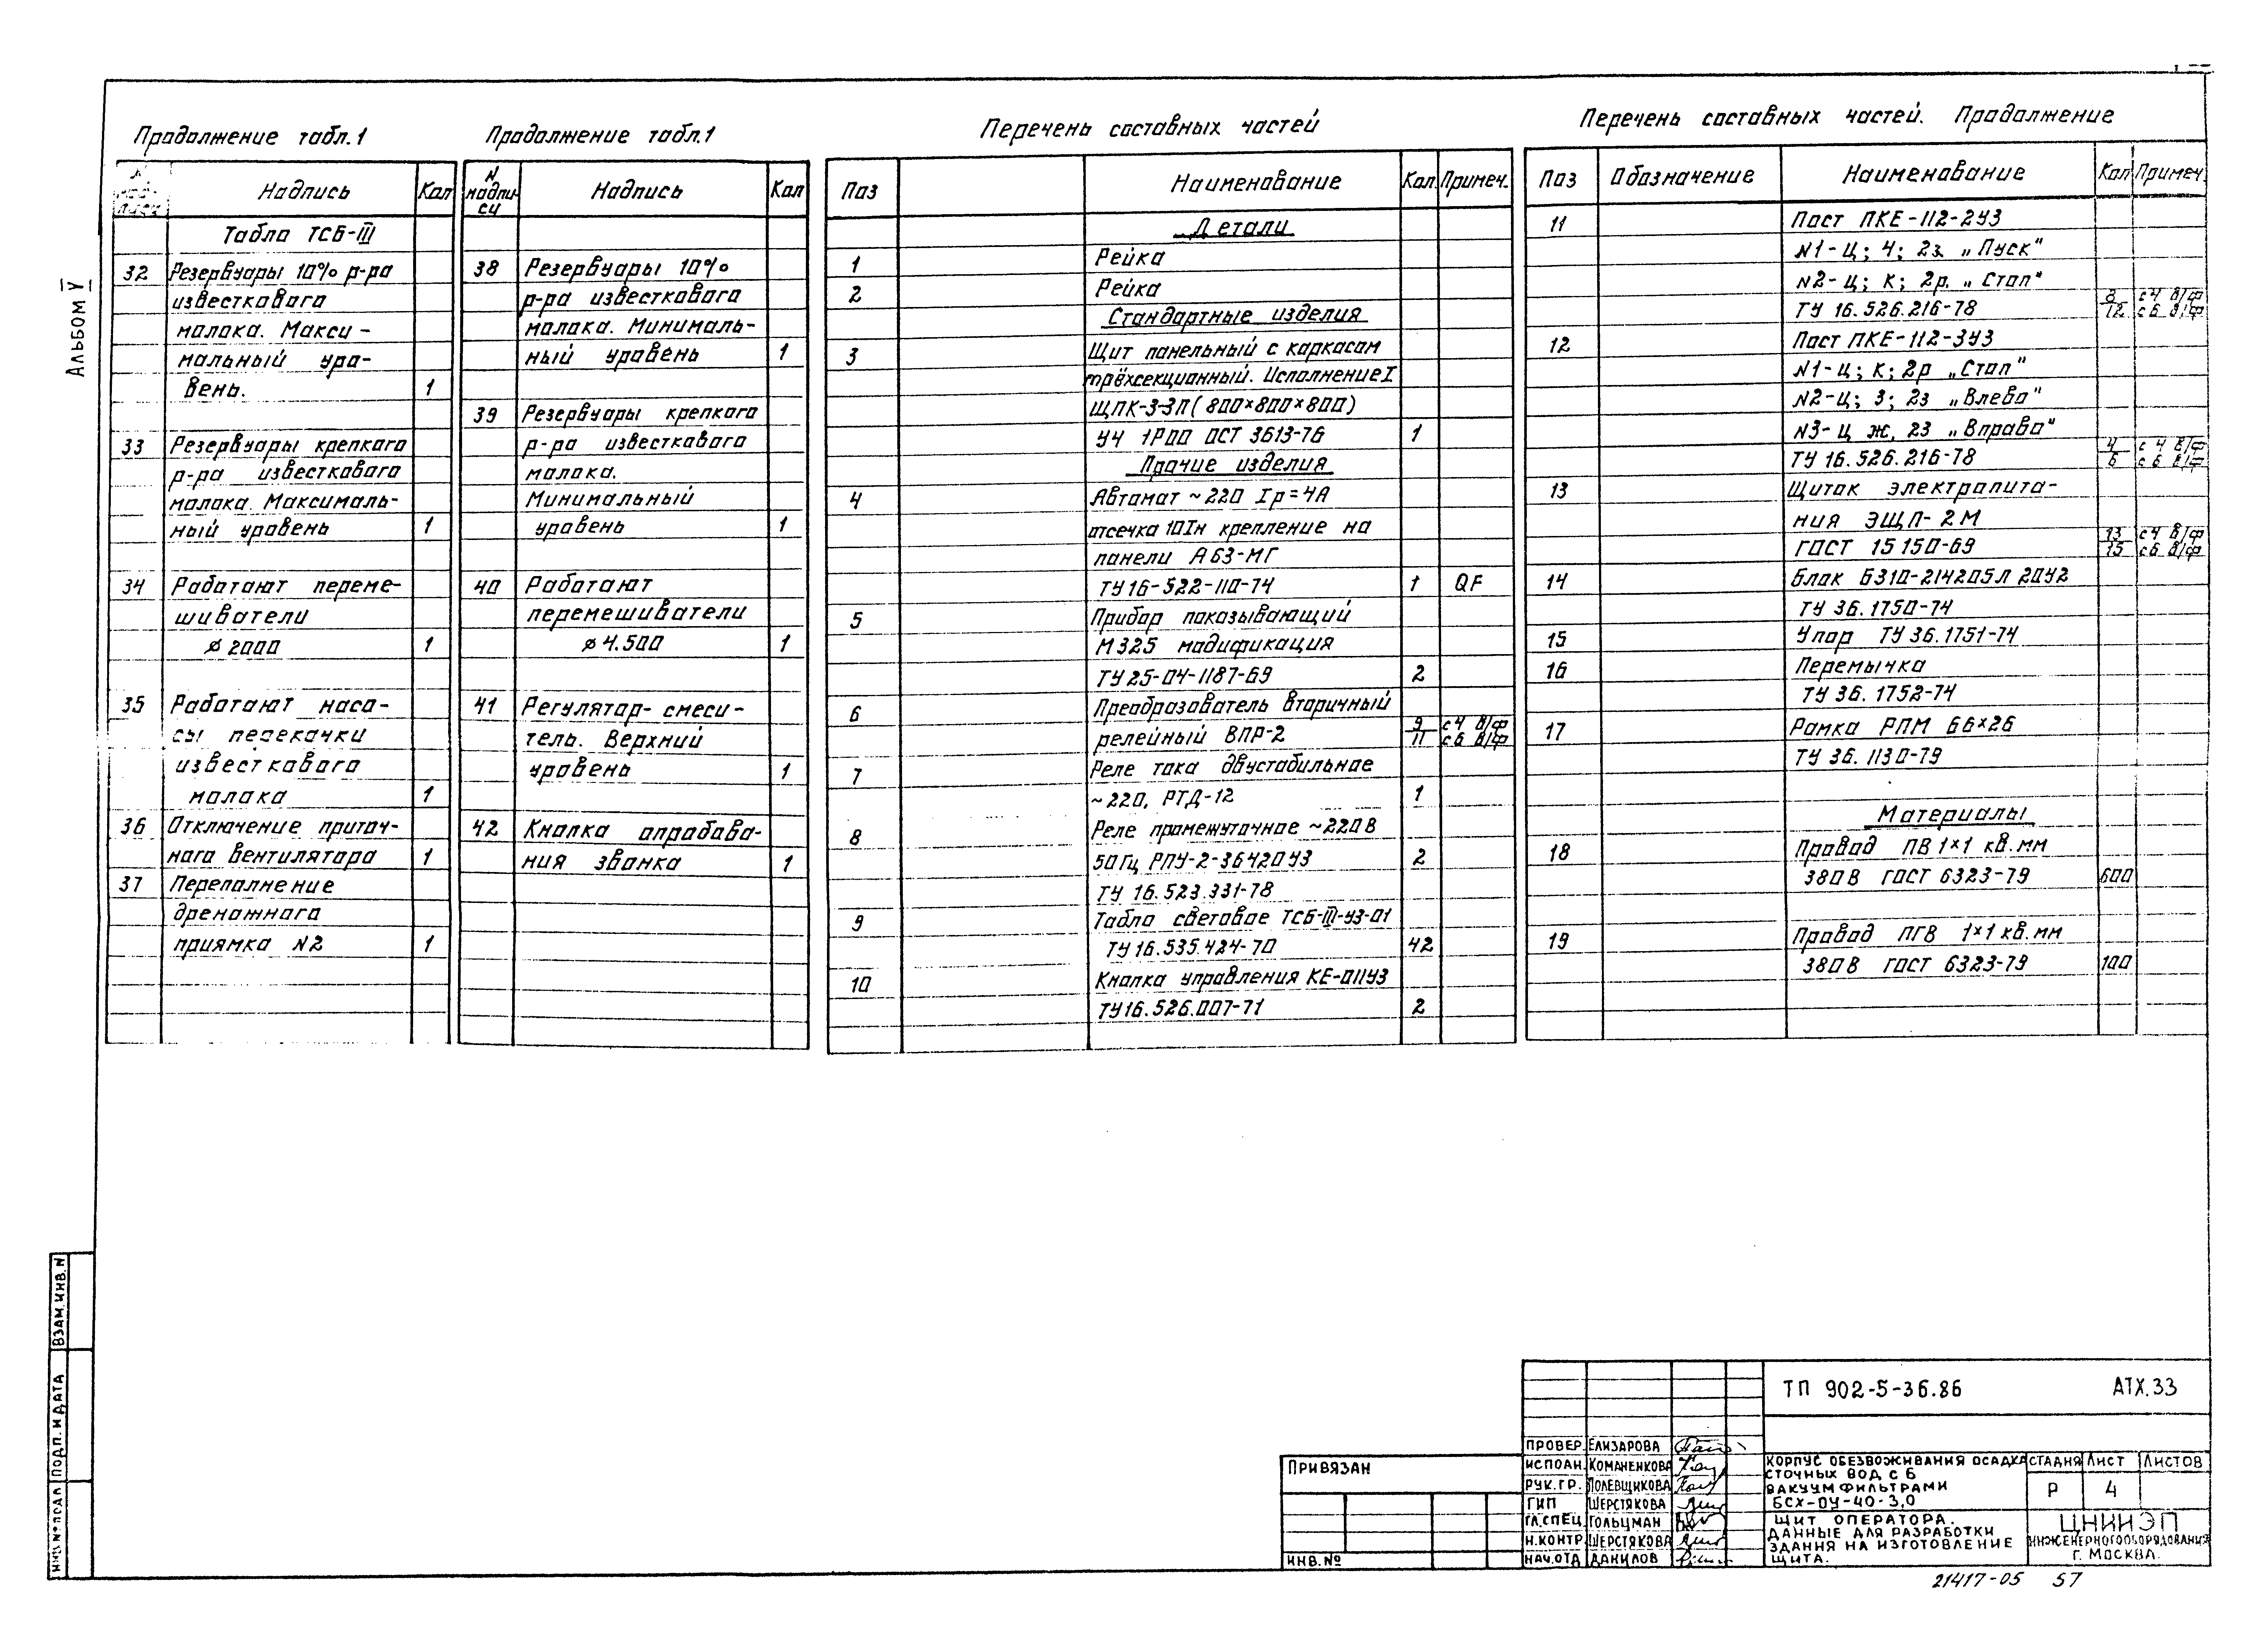 Альбом V
Продолжение табл.1
Надпись Кол
Табло ТСБ-III
32 Резервуары 10% р-ра
известкового
молока. Макси-
мальный уро-
вень. 1
33 Резервуары крепкого
р-ра известкового
молока. Максималь-
ный уровень 1
34 Работают переме-
шиватели
⌀ 2000 1
35 Работают насо-
сы перекачки
известкового
молока 1
36 Отключение приточ-
ного вентилятора 1
37 Переполнение
дренажного
приямка N2 1
Продолжение табл.1
N надпи-си Надпись Кол
38 Резервуары 10%
р-ра известкового
молока. Минималь-
ный уровень 1
39 Резервуары крепкого
р-ра известкового
молока.
Минимальный
уровень 1
40 Работают
перемешиватели
⌀ 4.500 1
41 Регулятор-смеси-
тель. Верхний
уровень 1
42 Кнопка опробова-
ния звонка 1
Перечень составных частей
Поз Наименование Кол Примеч.
Детали
1 Рейка
2 Рейка
Стандартные изделия
3 Щит панельный с каркасом
трёхсекционный. Исполнение I
ЩПК-3-ЗП(800×800×800)
У4 1Р00 ОСТ 3613-76 1
Прочие изделия
4 Автомат ~220 Iр=4А
отсечка 10Iн крепление на
панели А63-МГ
ТУ16-522-110-74 1 QF
5 Прибор показывающий
М325 модификация
ТУ25-04-1187-69 2
6 Преобразователь вторичный
релейный ВПР-2 9/11 с 4 в/ф с 6 в/ф
7 Реле тока двустабильное
~220, РТД-12 1
8 Реле промежуточное ~220В
50Гц РПУ-2-36420У3 2
ТУ 16.523.331-78
9 Табло световое ТСБ-III-У3-01
ТУ16.535.424-70 42
10 Кнопка управления КЕ-011У3
ТУ16.526.007-71 2
Перечень составных частей. Продолжение
Поз Обозначение Наименование Кол Примеч.
11 Пост ПКЕ-112-2У3
N1-Ц; Ч; 2з „Пуск"
N2-Ц; К; 2р. „Стоп"
ТУ 16.526.216-78 8/12 с 4 в/ф с 6 в/ф
12 Пост ПКЕ-112-3У3
N1-Ц; К; 2р „Стоп"
N2-Ц; З; 2з „Влево"
N3-Ц Ж, 2З „Вправо"
ТУ 16.526.216-78 4/6 с 4 в/ф с 6 в/ф
13 Щиток электропита-
ния ЭЩП-2М
ГОСТ 15150-69 13/15 с 4 в/ф с 6 в/ф
14 Блок Б310-214205Л 20У2
ТУ 36.1750-74
15 Упор ТУ 36.1751-74
16 Перемычка
ТУ 36.1752-74
17 Рамка РПМ 66×26
ТУ 36.1130-79
Материалы
18 Провод ПВ 1×1 кв.мм
380В ГОСТ 6323-79 600
19 Провод ПГВ 1×1 кв.мм
380В ГОСТ 6323-79 100
ВЗАМ.ИНВ.N
ПОДП. И ДАТА
ИНВ.№ ПОДЛ
ПРИВЯЗАН
ИНВ.№
ТП 902-5-36.86 АТХ.33
ПРОВЕР. ЕЛИЗАРОВА
ИСПОЛН. КОМАНЕНКОВА
РУК.ГР. ПОЛЕВЩИКОВА
ГИП ШЕРСТЯКОВА
ГЛ.СПЕЦ ГОЛЬЦМАН
Н.КОНТР. ШЕРСТЯКОВА
НАЧ.ОТД ДАНИЛОВ
КОРПУС ОБЕЗВОЖИВАНИЯ ОСАДКА
СТОЧНЫХ ВОД С 6
ВАКУУМФИЛЬТРАМИ
БСХ-ОУ-40-3,0
СТАДИЯ ЛИСТ ЛИСТОВ
Р 4
ЩИТ ОПЕРАТОРА.
ДАННЫЕ ДЛЯ РАЗРАБОТКИ
ЗДАНИЯ НА ИЗГОТОВЛЕНИЕ
ЩИТА.
ЦНИИЭП
ИНЖЕНЕРНОГО ОБОРУДОВАНИЯ
Г. МОСКВА.
21417-05 57